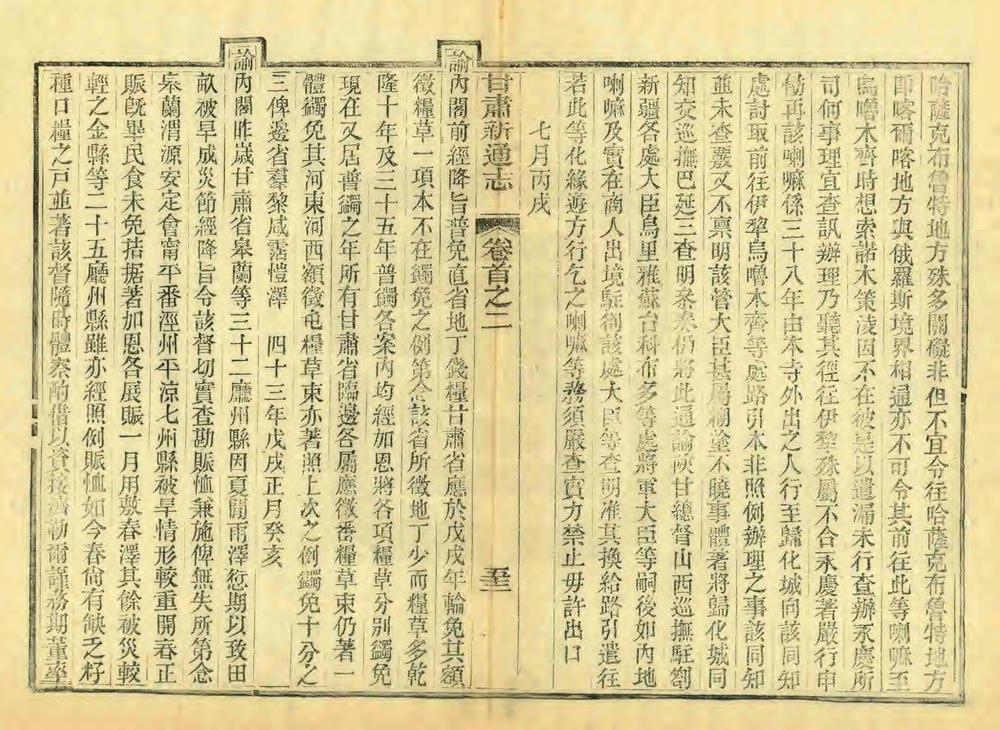 哈薩克布魯特地方殊多關礙非但不宜令往哈薩克布魯特地方
即喀爾喀地方與俄羅斯境界相通亦不可令其前往此等喇嘛至
烏嚕木齊時想索諾木策淩因不在彼是以遺漏未行查辦永慶所
司何事理宜查訊辦理乃聽其徑往伊犂殊屬不合永慶著嚴行申
飭再該喇嘛係三十八年由本寺外出之人行至歸化城同該同知
處討取前往伊犂烏嚕木齊等處路引本非照例辦理之事該同知
並未查覈又不禀明該管大臣甚屬糊塗不曉事體著將歸化城同
知交巡撫巴延三查明叅奏仍將此通諭陝甘總督山西巡撫駐劄
新疆各處大臣烏里雅蘇台科布多等處將軍大臣等嗣後如內地
喇嘛及實在商人出境駐劄該處大臣等查明准其換給路引遣往
若此等化緣遊方行乞之喇嘛等務須嚴查實力禁止毋許出口
七月丙戌
甘肅新通志 卷首之二 五十三
諭內閣前經降旨普免直省地丁錢糧甘肅省應於戊戌年輪免其額
徵糧草一項本不在蠲免之例第念該省所徵地丁少而糧草多乾
隆十年及三十五年普蠲各案內均經加恩將各項糧草分別蠲免
現在又屆普蠲之年所有甘肅省臨邊各屬應徵番糧草束仍著一
體蠲免其河東河西額徵屯糧草束亦著照上次之例蠲免十分之
三俾邊省羣黎咸霑愷澤 四十三年戊戌正月癸亥
諭內閣昨歲甘肅省皋蘭等三十二廳州縣因夏閒雨澤愆期以致田
畝被旱成災節經降旨令該督切實查勘賑恤兼施俾無失所第念
皋蘭渭源安定會甯平番涇州平涼七州縣被旱情形較重開春正
賑旣畢民食未免拮据著加恩各展賑一月用敷春澤其餘被災較
輕之金縣等二十五廳州縣雖亦經照例賑恤如今春尙有缺乏籽
種口糧之戶並著該督隨時體察酌借以資接濟勒爾謹務期董率